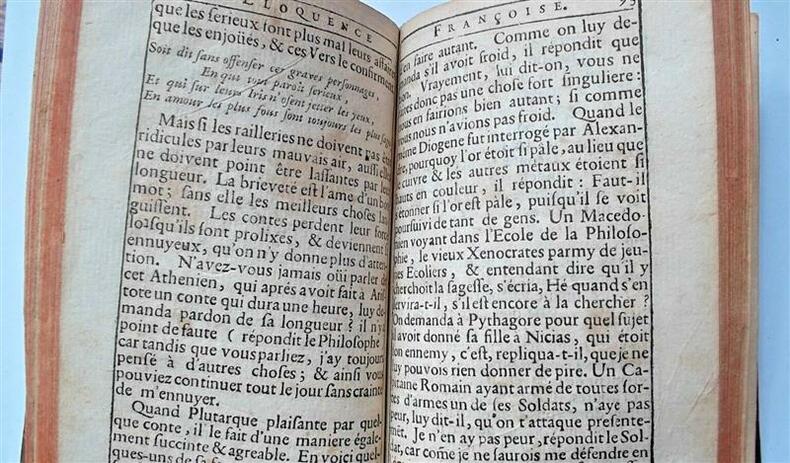 ELOQUENCE
que les serieux font plus mal leurs affaires
que les enjoüés, & ces Vers le confirment
Soit dit sans offenser ces graves personnages,
En qui tout paroît serieux,
Et qui sur leurs Iris n'osent jetter les yeux,
En amour les plus fous sont toujours les plus sages
Mais si les railleries ne doivent pas être
ridicules par leurs mauvais air, aussi elles
ne doivent point être lassantes par leur
longueur. La brieveté est l'ame d'un bon
mot; sans elle les meilleurs choses lan-
guissent. Les contes perdent leur force
lorsqu'ils sont prolixes, & deviennent si
ennuyeux, qu'on n'y donne plus d'atten-
tion. N'avez-vous jamais oüi parler de
cet Athenien, qui aprés avoit fait à Aris-
tote un conte qui dura une heure, luy de-
manda pardon de sa longueur? il n'y a
point de faute (répondit le Philosophe)
car tandis que vous parliez, j'ay toujours
pensé à d'autres choses; & ainsi vous
pouviez continuer tout le jour sans crainte
de m'ennuyer.
Quand Plutarque plaisante par quel-
que conte, il le fait d'une maniere égale-
ment succinte & agreable. En voici quel-
ques-uns de sa
FRANÇOISE. 95
en faire autant. Comme on luy de-
manda s'il avoit froid, il répondit que
non. Vrayement, lui dit-on, vous ne
faites donc pas une chose fort singuliere:
nous en fairions bien autant; si comme
vous nous n'avions pas froid. Quand le
même Diogene fut interrogé par Alexan-
dre, pourquoy l'or étoit si pâle, au lieu que
le cuivre & les autres métaux étoient si
hauts en couleur, il répondit: Faut-il
s'étonner si l'or est pâle, puisqu'il se voit
poursuivi de tant de gens. Un Macedo-
nien voyant dans l'Ecole de la Philoso-
phie, le vieux Xenocrates parmy de jeu-
nes Ecoliers, & entendant dire qu'il y
cherchoit la sagesse, s'écria, Hé quand s'en
servira-t-il, s'il est encore à la chercher?
On demanda à Pythagore pour quel sujet
il avoit donné sa fille à Nicias, qui étoit
son ennemy, c'est, repliqua-t-il, que je ne
luy pouvois rien donner de pire. Un Ca-
pitaine Romain ayant armé de toutes sor-
tes d'armes un de ses Soldats, n'aye pas
peur, luy dit-il, qu'on t'attaque presente-
mêt. Je n'en ay pas peur, répondit le Sol-
dat, car comme je ne saurois me défendre en